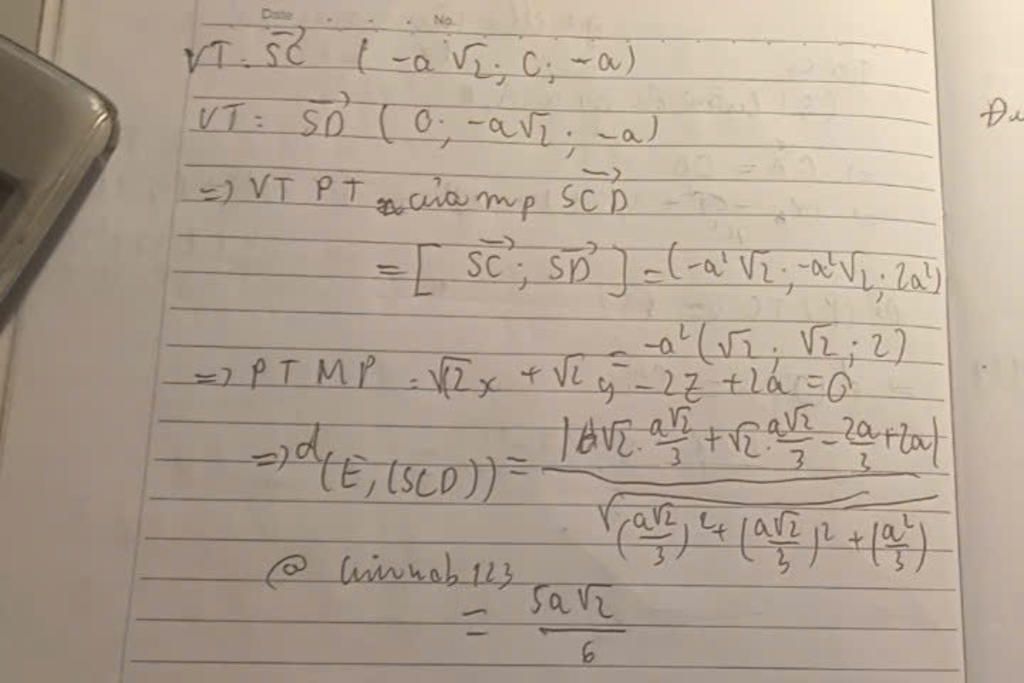 Date . . . No.
VT: SC→ (-a√2; 0; -a)
VT: SD→ (0; -a√2; -a)
=> VT PT của mp SCD→
= [SC→; SD→] = (-a²√2; -a²√2; 2a²)
= -a²(√2; √2; 2)
=> PT MP = √2x + √2y - 2z + 2a = 0
=> d(E,(SCD)) = |√2.a√2/3 + √2.a√2/3 - 2a/3 + 2a| / √((a√2/3)² + (a√2/3)² + (a²/3))
@ 123
= 5a√2/6